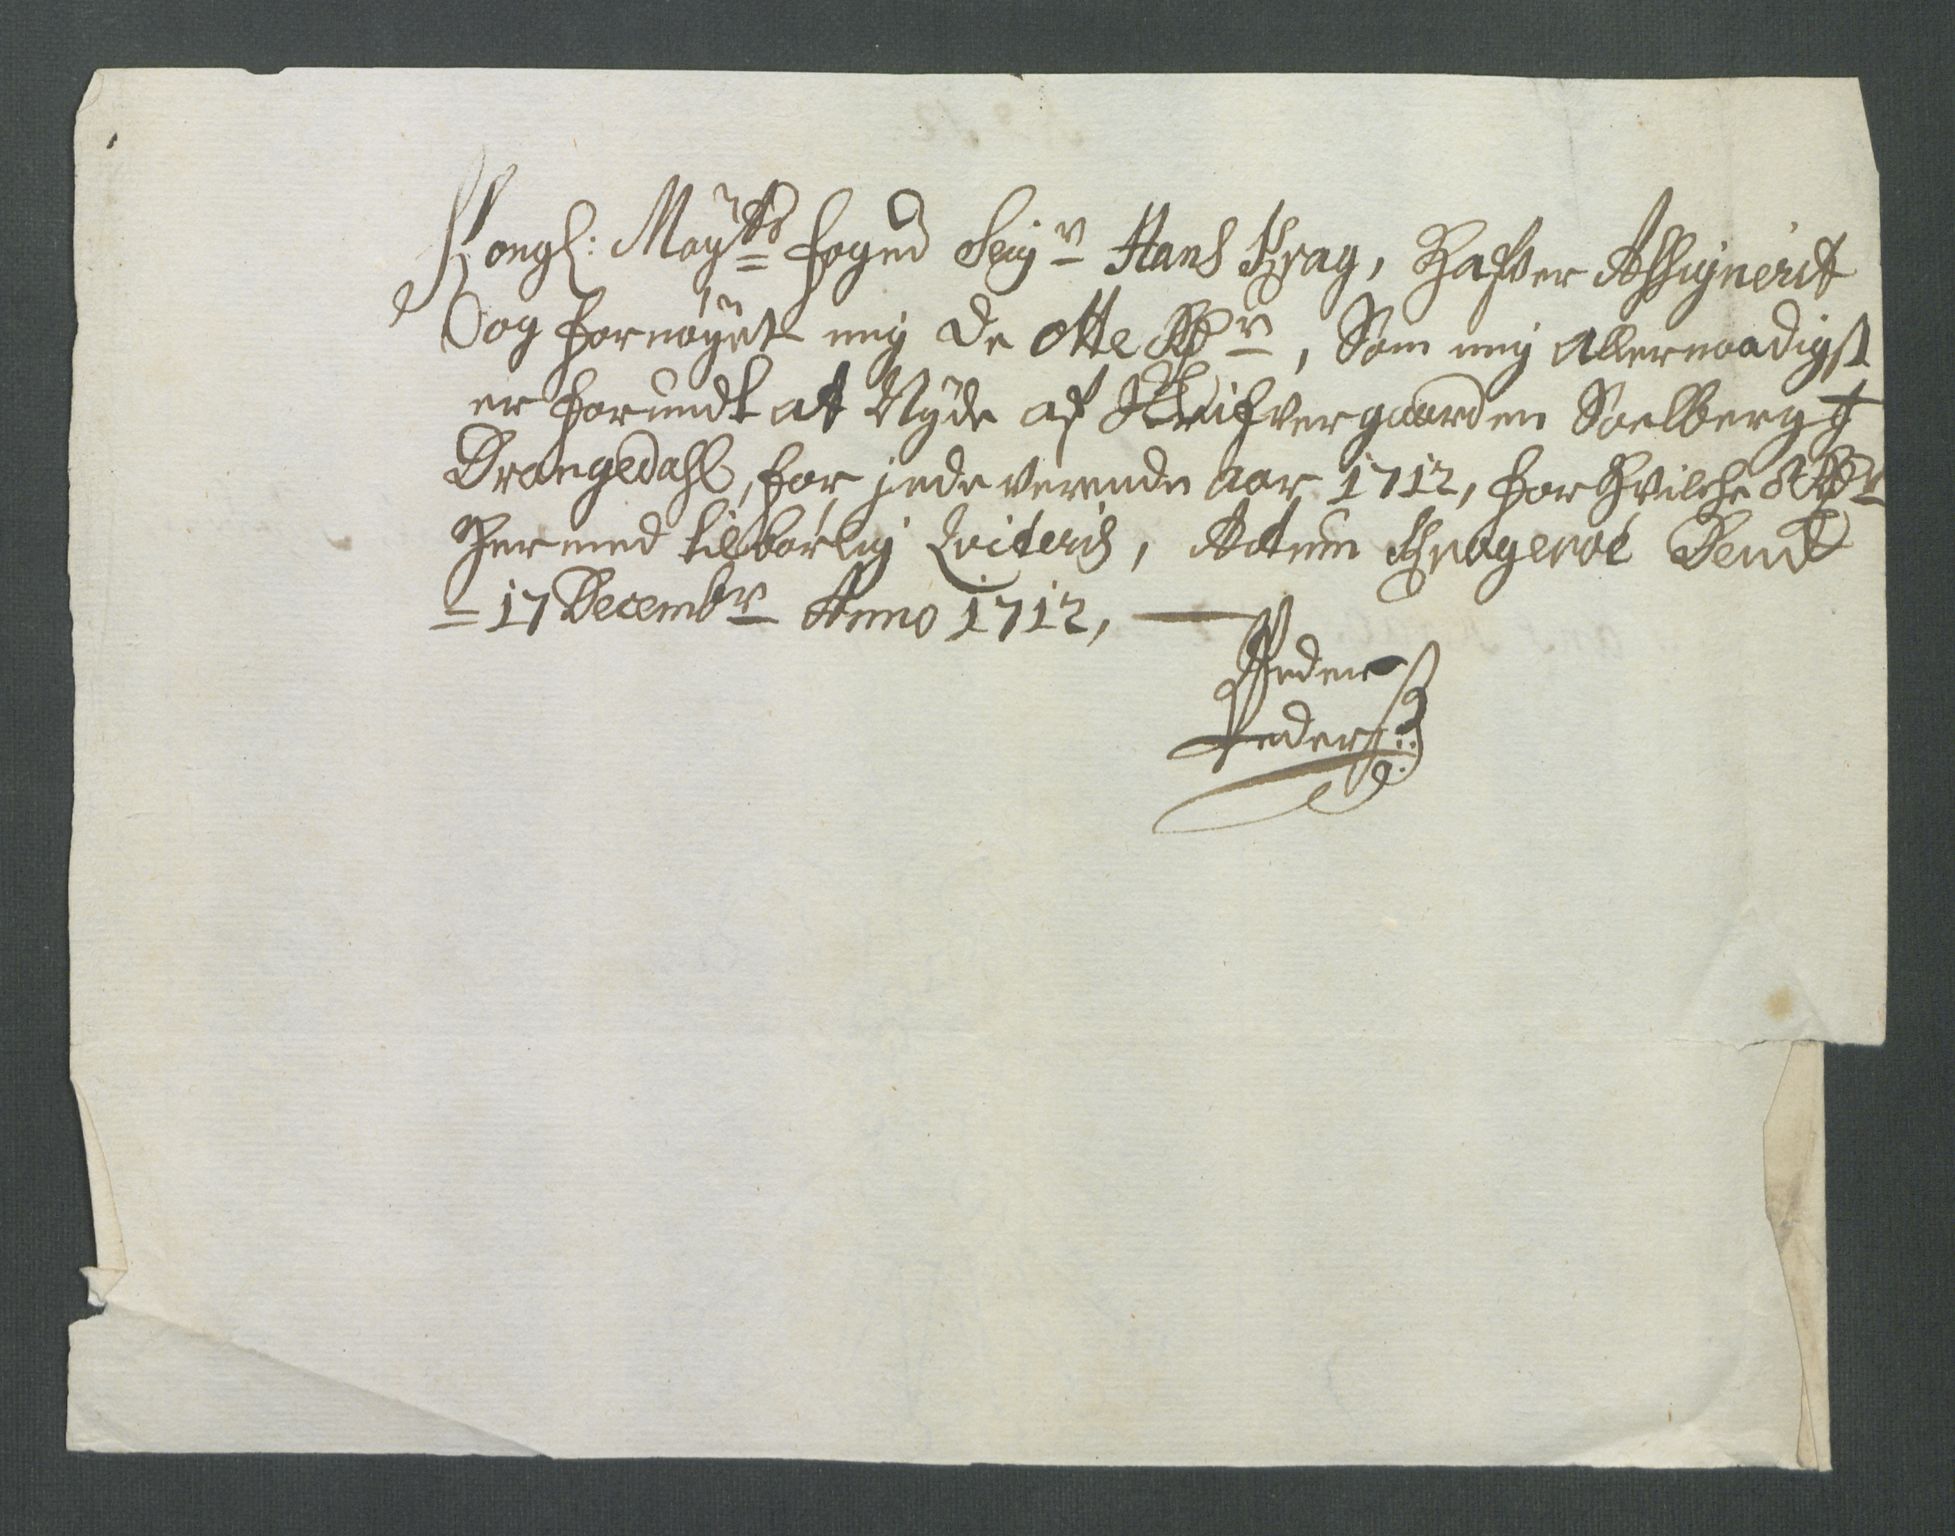 Kongl: Mayts foged Seigr Hans Krag, Hafver Assignerit
og fornöyet mig de otte Rdr, Som mig allernaadigst
er forundt at Nyde af Skrifvergaarden Soelberg j
Drangedahl, for jnde verende aar 1712, for hvilche 8 Rdr
hermed tilbørlig Qviteris, Actum Krageröe Dend
17 Decembr Anno 1712,
Peder
Peders: